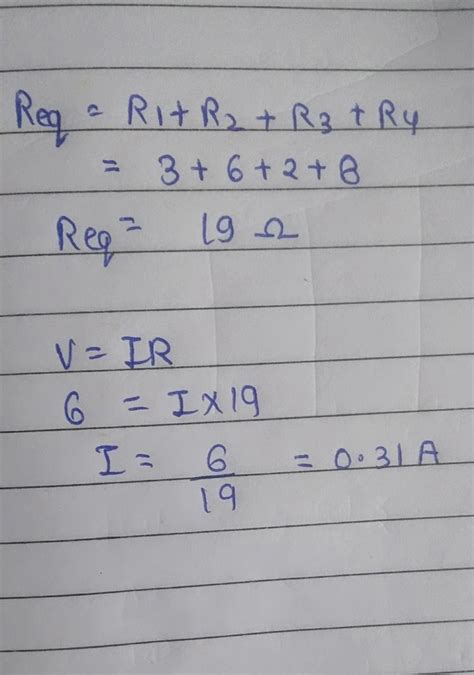 Req = R1 + R2 + R3 + R4
= 3 + 6 + 2 + 8
Req = 19 Ω
V = IR
6 = I × 19
I = 6/19 = 0.31A